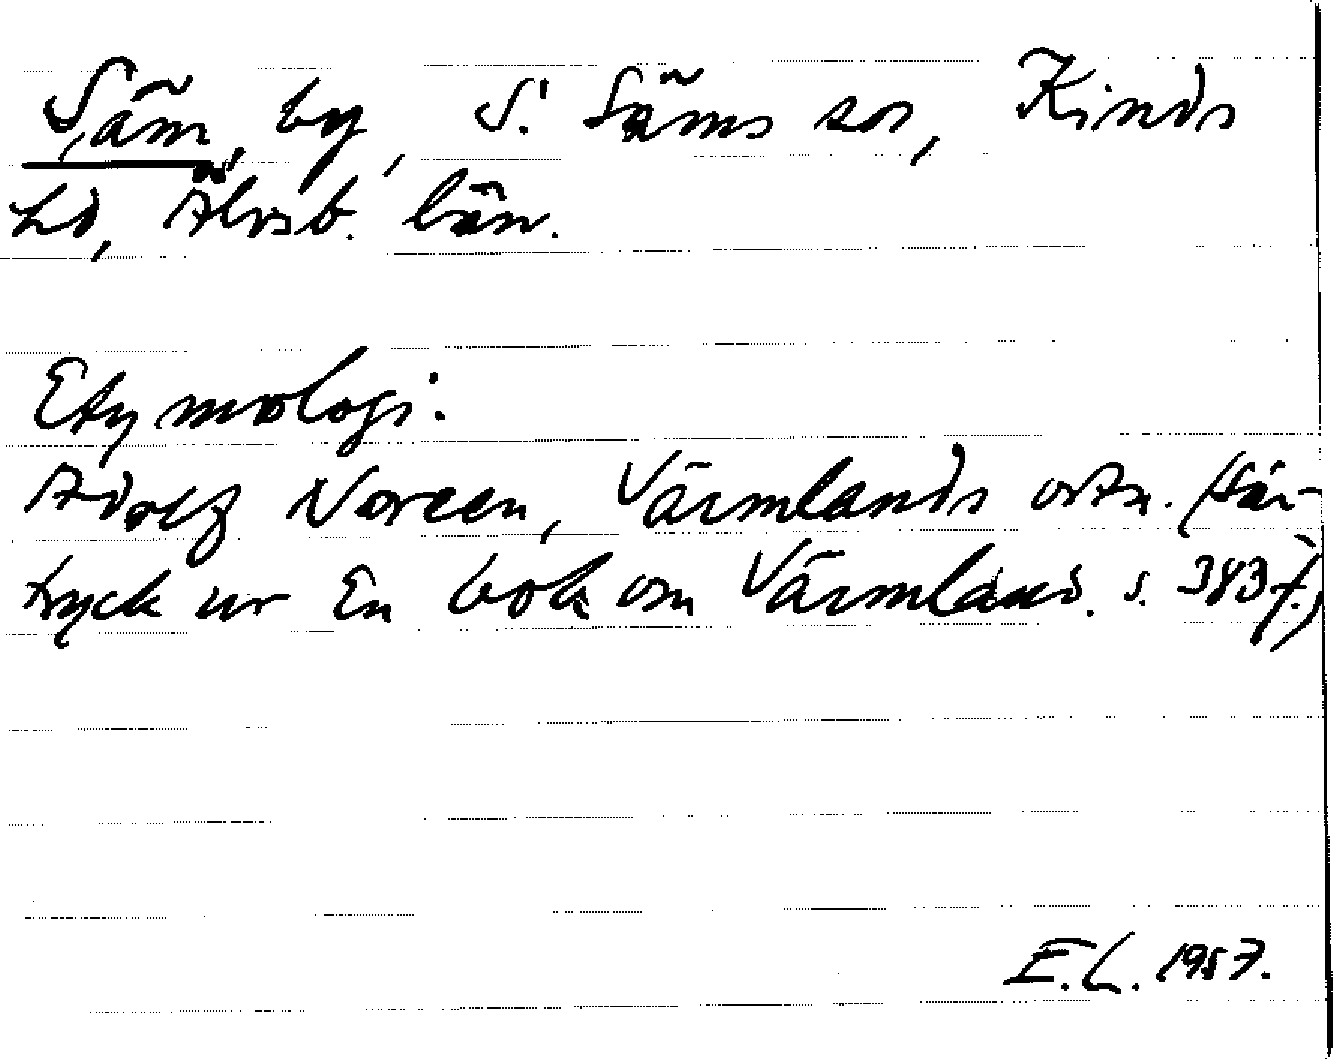 Säm, by, S. Säms sn, Kinds
hd, Älvsb. län.
Etymologi:
Adolf Noreen, Värmlands ortn. (Sär-
tryck ur En bok om Värmland. s. 383 f.)
E.L. 1957.